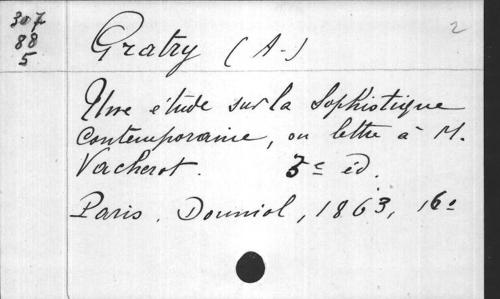 307
88
5
Gratry (A-)
2
Une étude sur la Sophistique
contemporaine, ou lettre à M.
Vacherot. 3e éd.
Paris, Douniol, 1863, 16o